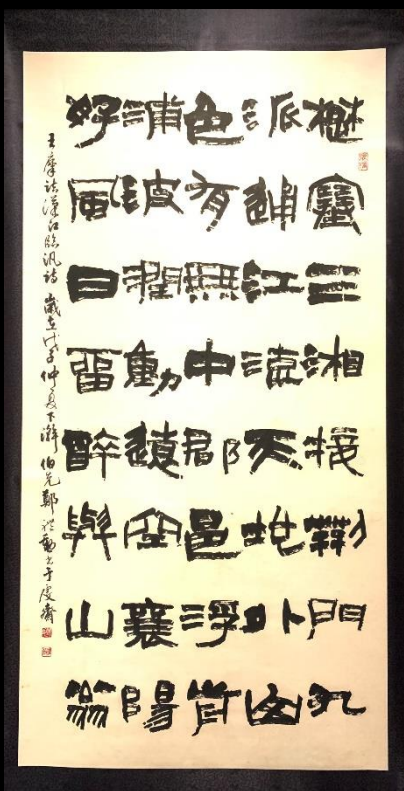 楚塞三湘接荊門九
派通江流天地外山
色有無中郡邑浮前
浦波瀾動遠空襄陽
好風日留醉與山翁
王摩詰漢江臨汎詩 歲在戊子仲夏下澣 伯元鄭書于齋